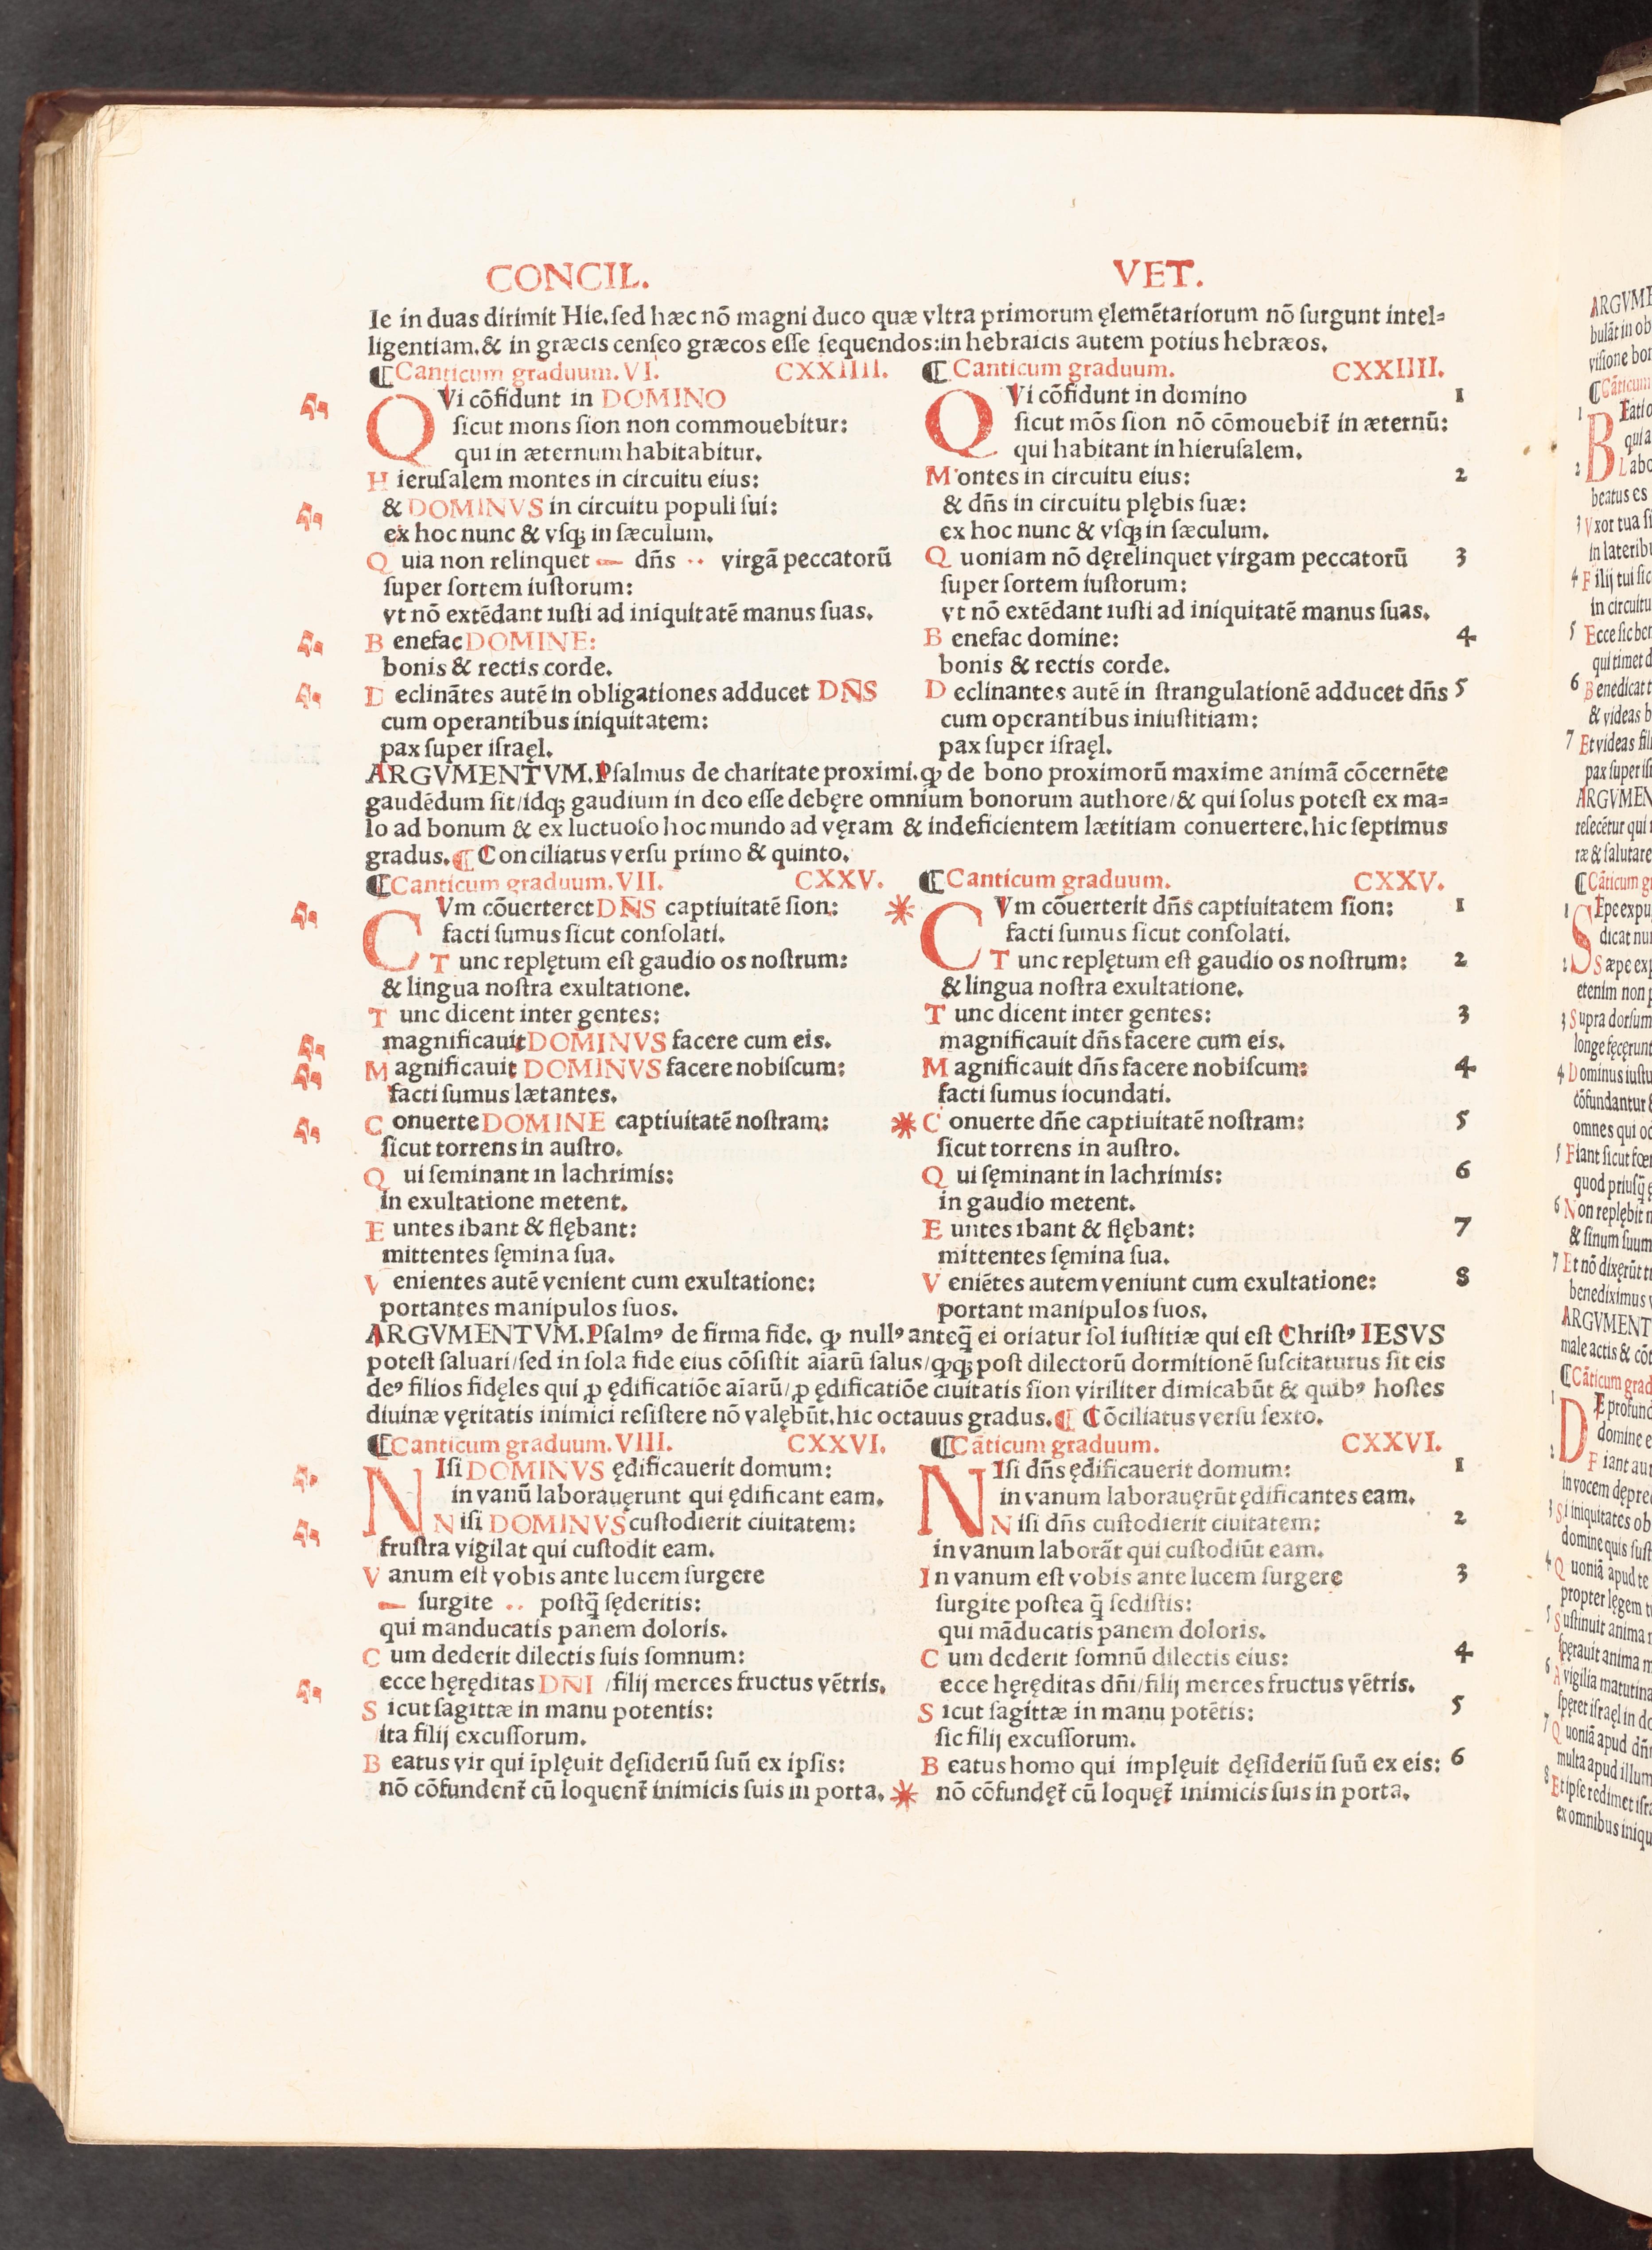 CONCIL. VET.
le in duas dirimit Hie.ſed hæc nõ magni duco quæ vltra primorum ęlemẽtariorum nõ ſurgunt intel⸗
ligentiam.& in græcis cenſeo græcos eſſe ſequendos:in hebraicis autem potius hebræos.
¶Canticum graduum.VI. CXXIIII.
QVi cõfidunt in DOMINO
ſicut mons ſion non commouebitur:
qui in æternum habitabitur.
H ieruſalem montes in circuitu eius:
& DOMINVS in circuitu populi ſui:
ex hoc nunc & vſqꝫ in ſæculum.
Q uia non relinquet dñs ·· virgã peccatorũ
ſuper ſortem iuſtorum:
vt nõ extẽdant iuſti ad iniquitatẽ manus ſuas.
B enefac DOMINE:
bonis & rectis corde.
D eclinãtes autẽ in obligationes adducet DÑS
cum operantibus iniquitatem:
pax ſuper iſraęl.
¶Canticum graduum. CXXIIII.
QVi cõfidunt in domino 1
ſicut mõs ſion nõ cõmouebit᷑ in æternũ:
qui habitant in hieruſalem.
M ontes in circuitu eius: 2
& dñs in circuitu plębis ſuæ:
ex hoc nunc & vſqꝫ in ſæculum.
Q uoniam nõ dęrelinquet virgam peccatorũ 3
ſuper ſortem iuſtorum:
vt nõ extẽdant iuſti ad iniquitatẽ manus ſuas.
B enefac domine: 4
bonis & rectis corde.
D eclinantes autẽ in ſtrangulationẽ adducet dñs 5
cum operantibus iniuſtitiam:
pax ſuper iſraęl.
ARGVMENTVM.Pſalmus de charitate proximi.ꝙ de bono proximorũ maxime animã cõcernẽte
gaudẽdum ſit/idqꝫ gaudium in deo eſſe debęre omnium bonorum authore/& qui ſolus poteſt ex ma⸗
lo ad bonum & ex luctuoſo hoc mundo ad vęram & indeficientem lætitiam conuertere.hic ſeptimus
gradus.¶ Conciliatus verſu primo & quinto.
¶Canticum graduum.VII. CXXV.
CVm cõuerteret DÑS captiuitatẽ ſion:
facti ſumus ſicut conſolati.
T unc replętum eſt gaudio os noſtrum:
& lingua noſtra exultatione.
T unc dicent inter gentes:
magnificauit DOMINVS facere cum eis.
M agnificauit DOMINVS facere nobiſcum:
facti ſumus lætantes.
C onuerte DOMINE captiuitatẽ noſtram:
ſicut torrens in auſtro.
Q ui ſeminant in lachrimis:
in exultatione metent.
E untes ibant & flębant:
mittentes ſęmina ſua.
V enientes autẽ venient cum exultatione:
portantes manipulos ſuos.
¶Canticum graduum. CXXV.
CVm cõuerterit dñs captiuitatem ſion: 1
facti ſumus ſicut conſolati.
T unc replętum eſt gaudio os noſtrum: 2
& lingua noſtra exultatione.
T unc dicent inter gentes: 3
magnificauit dñs facere cum eis.
M agnificauit dñs facere nobiſcum: 4
facti ſumus iocundati.
C onuerte dñe captiuitatẽ noſtram: 5
ſicut torrens in auſtro.
Q ui ſęminant in lachrimis: 6
in gaudio metent.
E untes ibant & flębant: 7
mittentes ſęmina ſua.
V eniẽtes autem veniunt cum exultatione: 8
portant manipulos ſuos.
ARGVMENTVM.Pſalmꝰ de firma fide. ꝙ nullꝰ anteq̃ ei oriatur ſol iuſtitiæ qui eſt Chriſtꝰ IESVS
poteſt ſaluari/ſed in ſola fide eius cõſiſtit aĩarũ ſalus/ꝙqꝫ poſt dilectorũ dormitionẽ ſuſcitaturus ſit eis
deꝰ filios fidęles qui ꝓ ędificatiõe aĩarũ/ꝓ ędificatiõe ciuitatis ſion viriliter dimicabũt & quibꝰ hoſtes
diuinæ vęritatis inimici reſiſtere nõ valębũt.hic octauus gradus.¶ Cõciliatus verſu ſexto.
¶Canticum graduum.VIII. CXXVI.
NIſi DOMINVS ędificauerit domum:
in vanũ laborauęrunt qui ędificant eam.
N iſi DOMINVS cuſtodierit ciuitatem:
fruſtra vigilat qui cuſtodit eam.
V anum eſt vobis ante lucem ſurgere
ſurgite ·· poſtq̃ ſęderitis:
qui manducatis panem doloris.
C um dederit dilectis ſuis ſomnum:
ecce hęręditas DÑI /filij merces fructus vẽtris.
S icut ſagittæ in manu potentis:
ita filij excuſſorum.
B eatus vir qui ĩplęuit dęſideriũ ſuũ ex ipſis:
nõ cõfundent᷑ cũ loquent᷑ inimicis ſuis in porta.
¶Cãticum graduum. CXXVI.
NIſi dñs ędificauerit domum: 1
in vanum laborauęrũt ędificantes eam.
N iſi dñs cuſtodierit ciuitatem: 2
in vanum laborãt qui cuſtodiũt eam.
I n vanum eſt vobis ante lucem ſurgere 3
ſurgite poſtea q̃ ſediſtis:
qui mãducatis panem doloris.
C um dederit ſomnũ dilectis eius: 4
ecce hęręditas dñi/filij merces fructus vẽtris.
S icut ſagittæ in manu potẽtis: 5
ſic filij excuſſorum.
B eatus homo qui implęuit dęſideriũ ſuũ ex eis: 6
nõ cõfundęt᷑ cũ loquęt᷑ inimicis ſuis in porta.